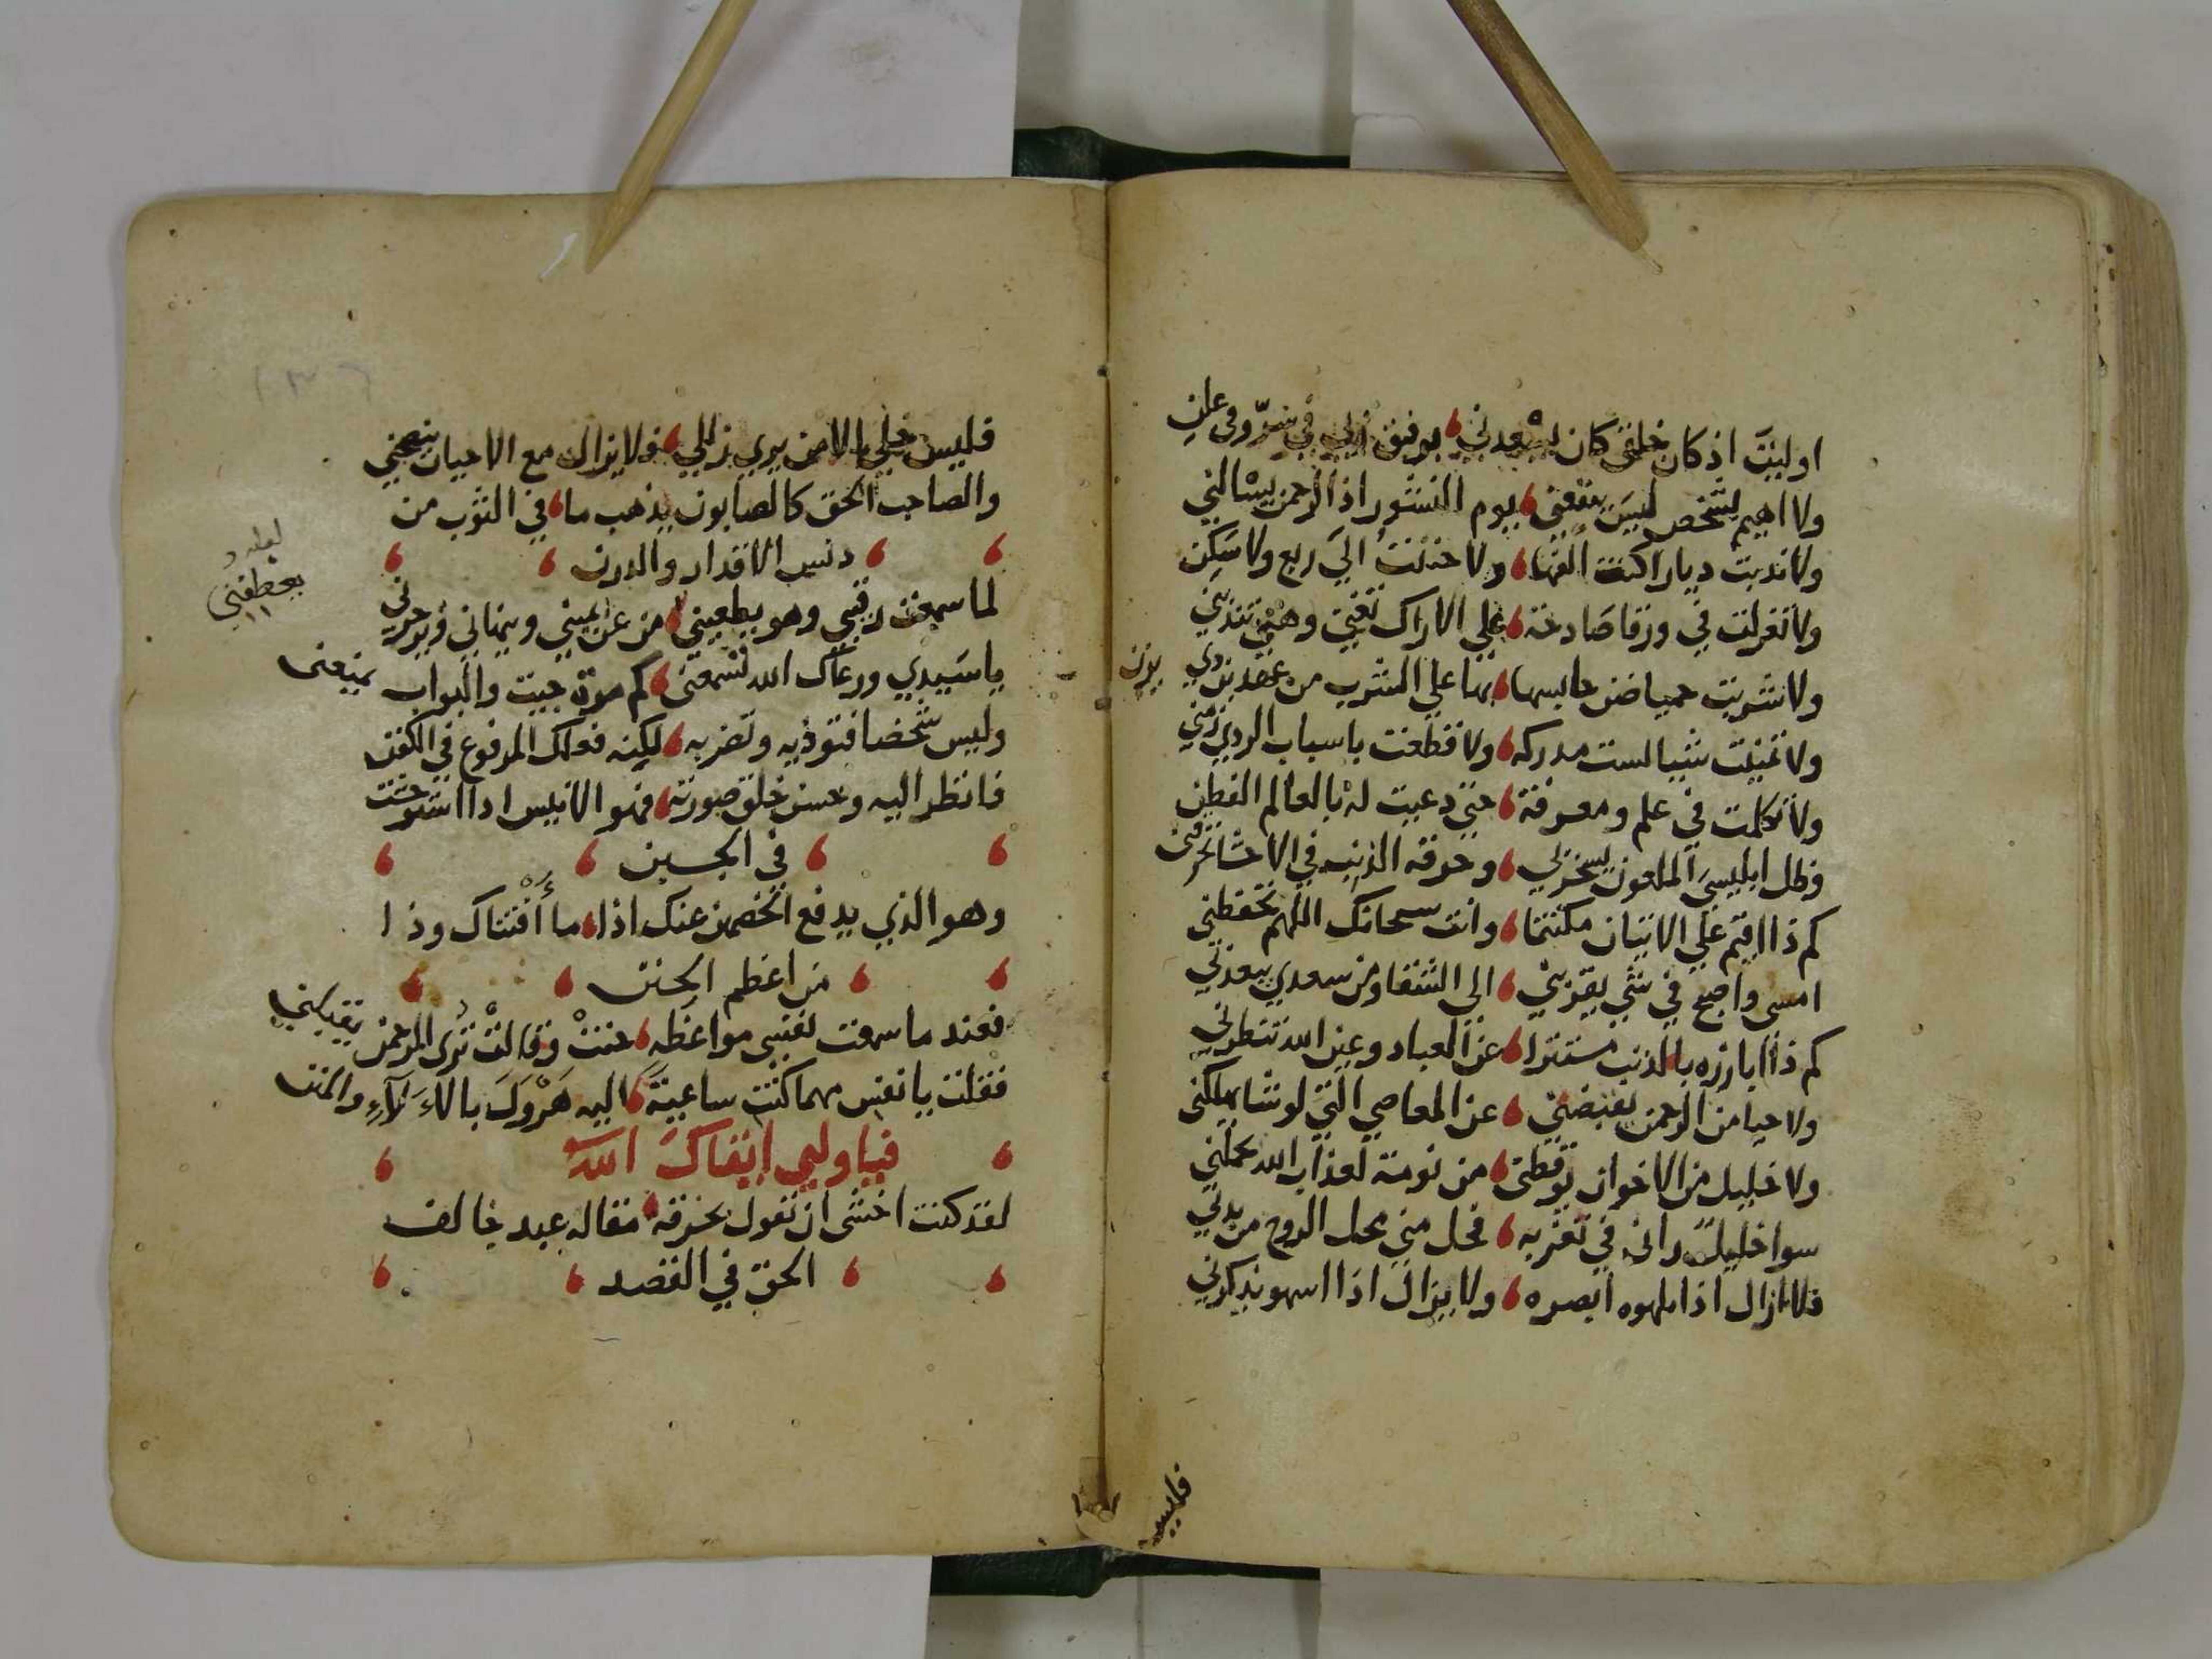 او ليت اذ كان خلقى كان يسعدني بوفق ربي في سرّ وفي علن
ولا اهيم لشخص ليس ينفعنى يوم النشور اذ الرحمن يسالني
ولا ندبت ديارا كنت الفها ولا حننت الي ربع ولا سكن
ولا تغزلت في ورقا صادحة علي الاراك تغني وهي تندبني
ولا شربت حميا ضن حابسها بها علي الشرب من عهد بن ذي يزن
ولا تمنيت شيا لست مدركه ولا قطعت باسباب الردي زمني
ولا تكلمت في علم ومعرفة حتي دعيت له بالعالم الفطن
وظل ابليس الملعون يسخر لي وحرقه الذنب في الاحشا تحرقنى
كم ذا اقيم علي الاتيان مكتتما وانت سبحانك اللهم تحفظني
امسى واصبح في شي يقربني الى الشقا ومن سعدي يبعدني
كم ذا ابارزه بالذنب مستترا عن العباد وعين الله تنظرني
ولا حيا من الرحمن يقبضني عن المعاصي التي لو شا يهلكني
ولا خليل من الاخوان يوقظنى من نومة لعذاب الله تحملني
سوا خليل رانى في تغربه فحل مني محل الروح من بدني
فلا ازال اذا ملهوه ابصره ولا يزال اذا اسهو يذكرني
فليس
فليس خلي الا من يري زللي ولا يزال مع الاحيان ينصحني
والصاحب الحق كالصابون يذهب ما في الثوب من
دنس الاقدار والدرن
لما سمعت رقيبي وهو يعطفني من عن يميني وينهاني ويزجرني
لعله
يعطفني
يا سيدي ورعاك الله تسمعنى كم مرة جيت والبواب يمنعنى
وليس شخصا فتوذيه وتضربه لكنه فعلك المرفوع في الكفن
فانظر اليه وحسن خلق صورته فهو الانيس اذا استوحشت
في الجدث
وهو الذي يدفع الخصمين عنك اذا ما أفتناك وذا
من اعظم المحن
فعند ما سمعت نفسي مواعظه حنت وقالت ترى الرحمن يقبلني
فقلت يا نفس مهما كنت ساعية اليه هرول بالالآء والمنن
فيا ولي ابقاك الله
لقد كنت اخشى ان تقول بحرقه مقاله عبد خالف
الحق في القصد